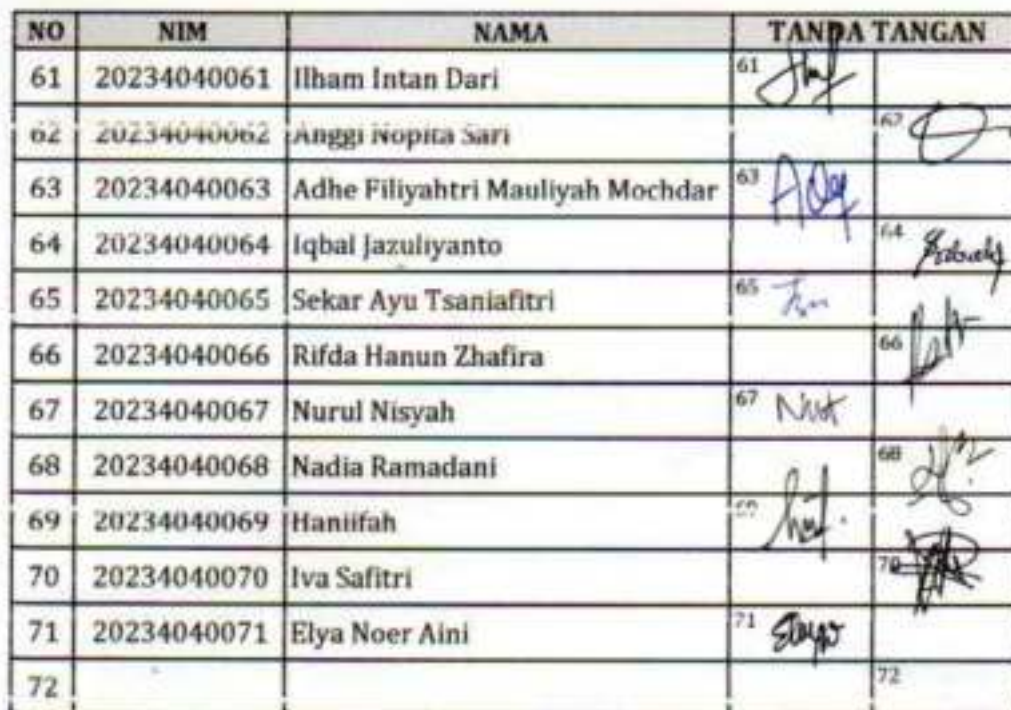 NO NIM NAMA TANDA TANGAN
61 20234040061 Ilham Intan Dari 61
62 20234040062 Anggi Nopita Sari 62
63 20234040063 Adhe Filiyahtri Mauliyah Mochdar 63
64 20234040064 Iqbal Jazuliyanto 64
65 20234040065 Sekar Ayu Tsaniafitri 65
66 20234040066 Rifda Hanun Zhafira 66
67 20234040067 Nurul Nisyah 67
68 20234040068 Nadia Ramadani 68
69 20234040069 Haniifah 69
70 20234040070 Iva Safitri 70
71 20234040071 Elya Noer Aini 71
72 72